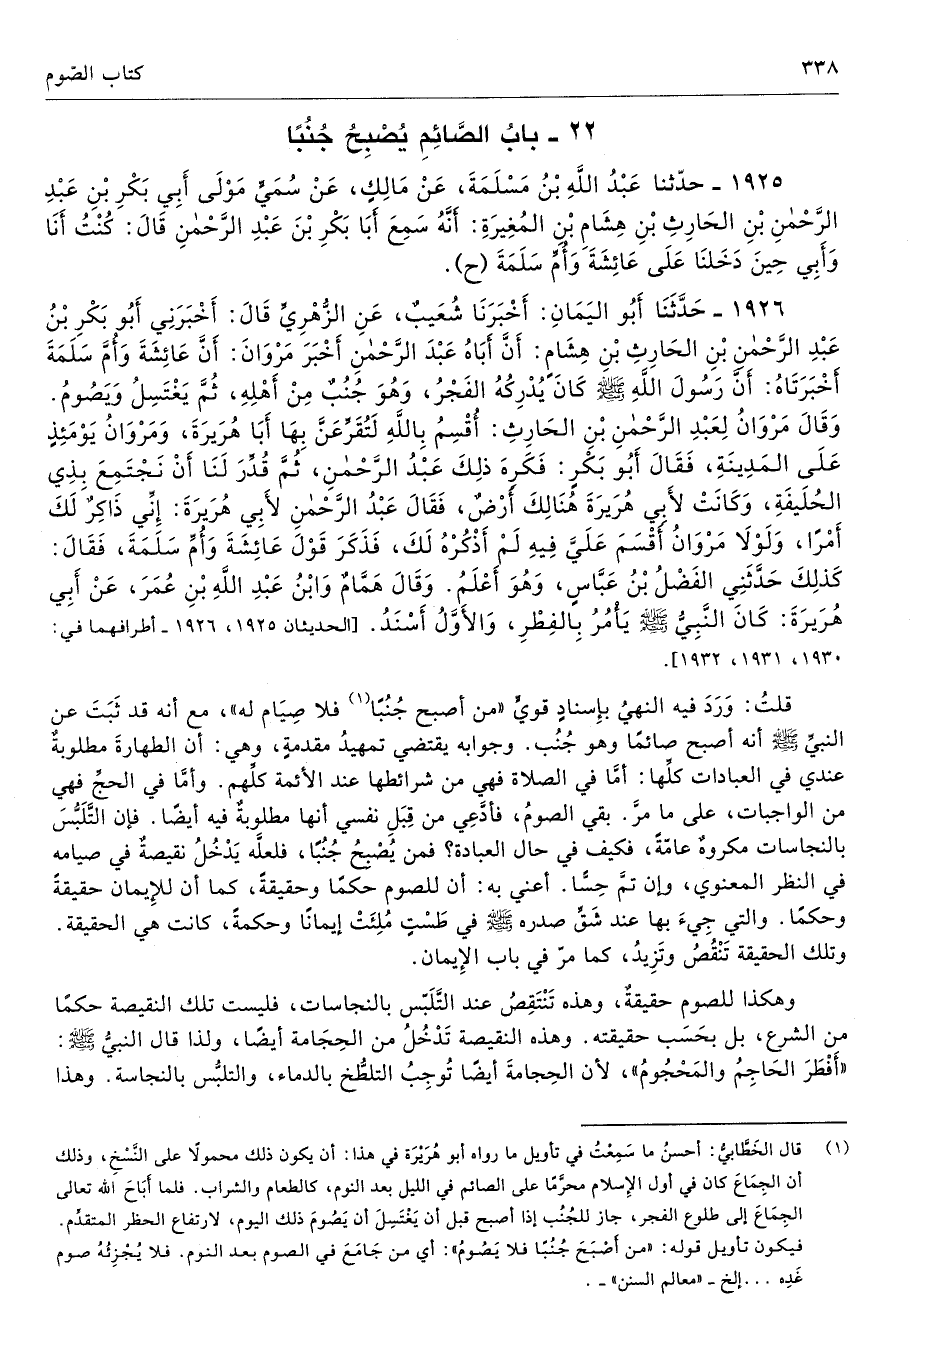 ٣٣٨ كتاب الصّوم
٢٢ ـ بابُ الصَّائِمِ يُصْبِحُ جُنُبًا
١٩٢٥ ـ حدّثنا عَبْدُ اللَّهِ بْنُ مَسْلَمَةَ، عَنْ مَالِكٍ، عَنْ سُمَيٍّ مَوْلَى أَبِي بَكْرِ بْنِ عَبْدِ
الرَّحْمٰنِ بْنِ الحَارِثِ بْنِ هِشَامِ بْنِ المُغِيرَةِ: أَنَّهُ سَمِعَ أَبَا بَكْرِ بْنَ عَبْدِ الرَّحْمٰنِ قَالَ: كُنْتُ أَنَا
وَأَبِي حِينَ دَخَلْنَا عَلَى عَائِشَةَ وَأُمِّ سَلَمَةَ (ح).
١٩٢٦ ـ حَدَّثَنَا أَبُو اليَمَانِ: أَخْبَرَنَا شُعَيبٌ، عَنِ الزُّهْرِيِّ قَالَ: أَخْبَرَنِي أَبُو بَكْرِ بْنُ
عَبْدِ الرَّحْمٰنِ بْنِ الحَارِثِ بْنِ هِشَامٍ: أَنَّ أَبَاهُ عَبْدَ الرَّحْمٰنِ أَخْبَرَ مَرْوَانَ: أَنَّ عَائِشَةَ وَأُمَّ سَلَمَةَ
أَخْبَرَتَاهُ: أَنَّ رَسُولَ اللَّهِ ﷺ كَانَ يُدْرِكُهُ الفَجْرُ، وَهُوَ جُنُبٌ مِنْ أَهْلِهِ، ثُمَّ يَغْتَسِلُ وَيَصُومُ.
وَقَالَ مَرْوَانُ لِعَبْدِ الرَّحْمٰنِ بْنِ الحَارِثِ: أُقْسِمُ بِاللَّهِ لَتُقَرِّعَنَّ بِهَا أَبَا هُرَيرَةَ، وَمَرْوَانُ يَوْمَئِذٍ
عَلَى المَدِينَةِ، فَقَالَ أَبُو بَكْرٍ: فَكَرِهَ ذلِكَ عَبْدُ الرَّحْمٰنِ، ثُمَّ قُدِّرَ لَنَا أَنْ نَجْتَمِعَ بِذِي
الحُلَيفَةِ، وَكَانَتْ لأَبِي هُرَيرَةَ هُنَالِكَ أَرْضٌ، فَقَالَ عَبْدُ الرَّحْمٰنِ لأَبِي هُرَيرَةَ: إِنِّي ذَاكِرٌ لَكَ
أَمْرًا، وَلَوْلَا مَرْوَانُ أَقْسَمَ عَلَيَّ فِيهِ لَمْ أَذْكُرْهُ لَكَ، فَذَكَرَ قَوْلَ عَائِشَةَ وَأُمِّ سَلَمَةَ، فَقَالَ:
كَذلِكَ حَدَّثَنِي الفَضْلُ بْنُ عَبَّاسٍ، وَهُوَ أَعْلَمُ. وَقَالَ هَمَّامٌ وَابْنُ عَبْدِ اللَّهِ بْنِ عُمَرَ، عَنْ أَبِي
هُرَيرَةَ: كَانَ النَّبِيُّ ﷺ يَأْمُرُ بِالفِطْرِ، وَالأَوَّلُ أَسْنَدُ. [الحديثان ١٩٢٥، ١٩٢٦ ـ أطرافهما في:
١٩٣٠، ١٩٣١، ١٩٣٢].
قلتُ: وَرَدَ فيه النهيُ بإِسنادٍ قويٍّ «من أصبح جُنُبًا(١) فلا صِيَام له»، مع أنه قد ثَبَتَ عن
النبيِّ ﷺ أنه أصبح صائمًا وهو جُنُب. وجوابه يقتضي تمهيدُ مقدمةٍ، وهي: أن الطهارةَ مطلوبةٌ
عندي في العبادات كلِّها: أمَّا في الصلاة فهي من شرائطها عند الأئمة كلِّهم. وأمَّا في الحجِّ فهي
من الواجبات، على ما مرَّ. بقي الصومُ، فأدَّعِي من قِبَلِ نفسي أنها مطلوبةٌ فيه أيضًا. فإن التَّلَبُّسَ
بالنجاسات مكروهٌ عامّةً، فكيف في حال العبادة؟ فمن يُصْبِحُ جُنُبًا، فلعلَّه يَدْخُلُ نقيصةٌ في صيامه
في النظر المعنوي، وإن تمَّ حِسًّا. أعني به: أن للصوم حكمًا وحقيقةً، كما أن للإِيمان حقيقةً
وحكمًا. والتي جِيءَ بها عند شَقِّ صدره ﷺ في طَسْتٍ مُلِئَتْ إيمانًا وحكمةً، كانت هي الحقيقة.
وتلك الحقيقة تَنْقُصُ وتَزِيدُ، كما مرّ في باب الإِيمان.
وهكذا للصوم حقيقةٌ، وهذه تَنْتَقِصُ عند التَّلَبّس بالنجاسات، فليست تلك النقيصة حكمًا
من الشرع، بل بحَسَب حقيقته. وهذه النقيصة تَدْخُلُ من الحِجَامة أيضًا، ولذا قال النبيُّ ﷺ:
«أَفْطَرَ الحَاجِمُ والمَحْجُومُ»، لأن الحِجامةَ أيضًا تُوجِبُ التلطُّخ بالدماء، والتلبُّس بالنجاسة. وهذا
(١) قال الخَطَّابيُّ: أحسنُ ما سَمِعْتُ في تأويل ما رواه أبو هُرَيْرَة في هذا: أن يكون ذلك محمولًا على النَّسْخِ، وذلك
أن الجِمَاعَ كان في أول الإِسلام محرَّمًا على الصائم في الليل بعد النوم، كالطعام والشراب. فلما أَبَاحَ الله تعالى
الجِمَاعَ إلى طلوع الفجر، جاز للجُنُب إذا أصبح قبل أن يَغْتَسِلَ أن يَصُومَ ذلك اليوم، لارتفاع الحظر المتقدِّم.
فيكون تأويل قوله: «من أَصْبَحَ جُنُبًا فلا يَصُومُ»: أي من جَامَعَ في الصوم بعد النوم. فلا يُجْزِئُهُ صوم
غَدِه ...إلخ ـ «معالم السنن» ـ .